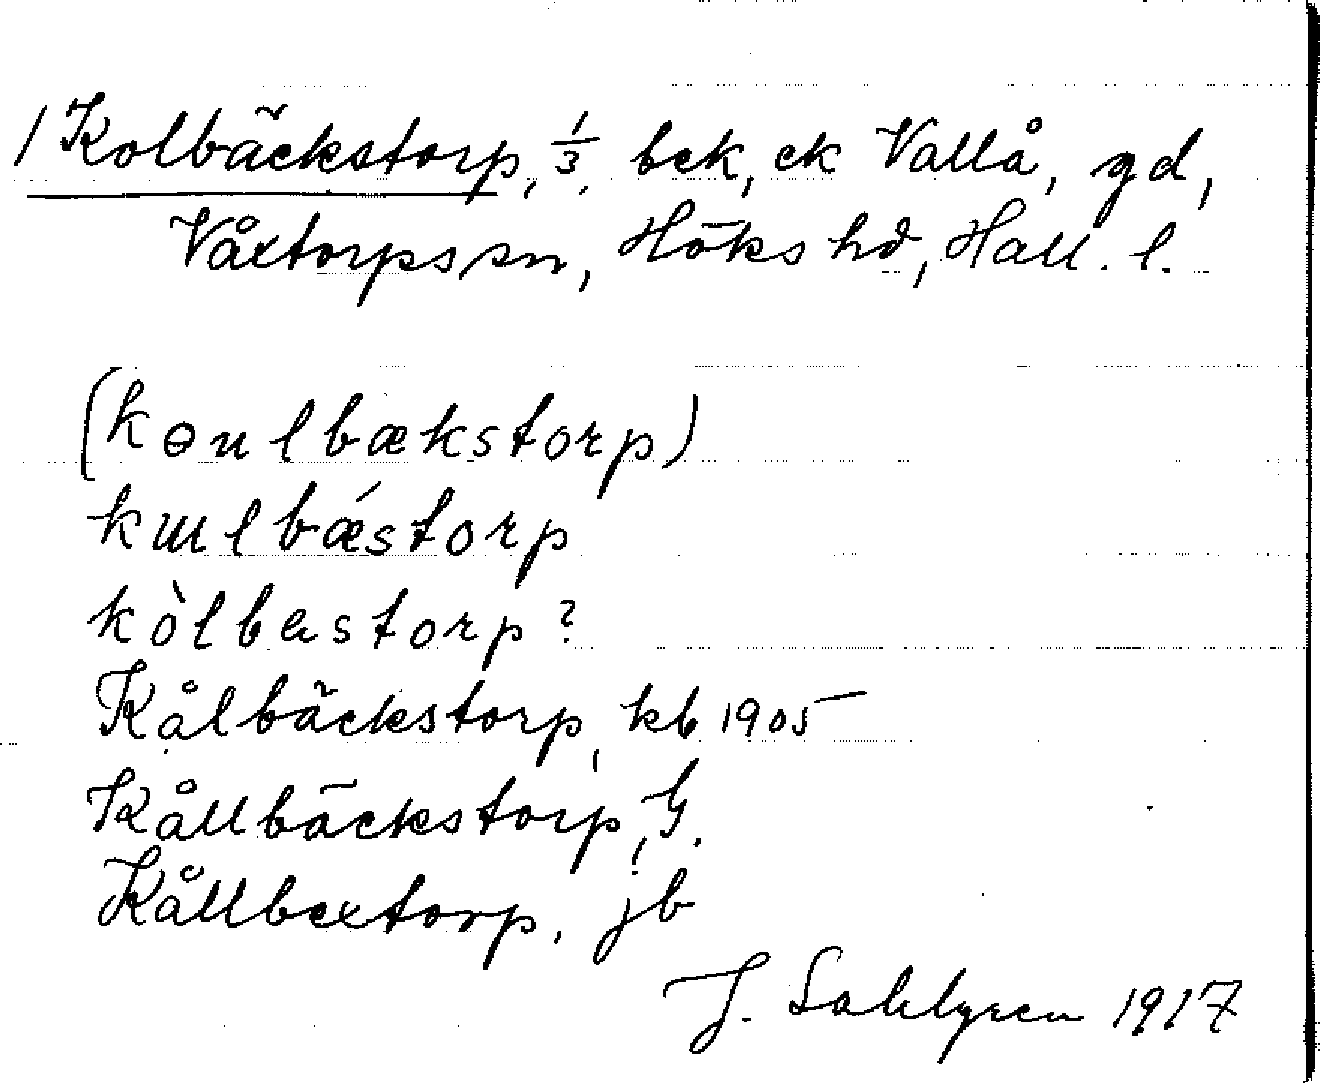 / Kolbäckstorp, 1/3, bek, ek Vallå, gd,
Våxtorps sn, Höks hd, Hall. l.
(kɵulbækstorp)
kɯlbǽstorp
kòlbastorp?
Kålbäckstorp, kb 1905
Kållbäckstorp, G.
Kållbextorp, jb
J. Sahlgren 1917